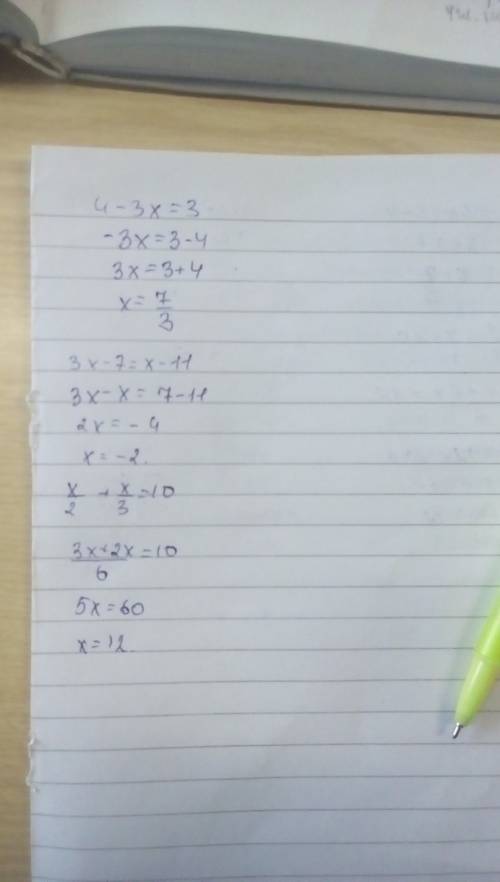 4 - 3x = 3
-3x = 3 - 4
3x = 3 + 4
x = 7/3
3x - 7 = x - 11
3x - x = 7 - 11
2x = - 4
x = -2.
x/2 + x/3 = 10
3x + 2x/6 = 10
5x = 60
x = 12.